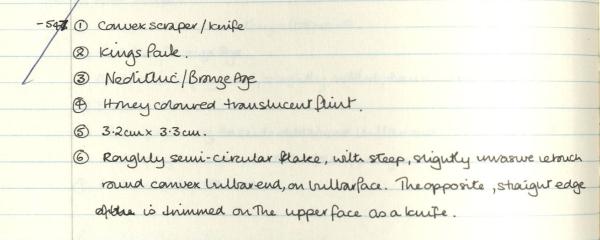 -547 ① Convex scraper/knife
② Kings Park.
③ Neolithic/Bronze Age
④ Honey coloured translucent flint.
⑤ 3.2cm x 3.3cm.
⑥ Roughly semi-circular flake, with steep, slightly invasive retouch
round convex bulbar end, on bulbar face. The opposite, straight edge
is trimmed on the upper face as a knife.